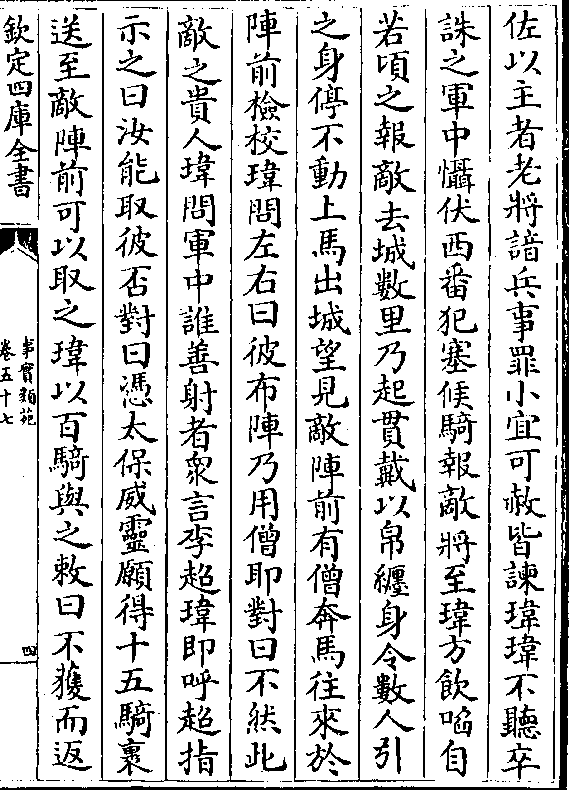 佐以主者老將諳兵事罪小宜可赦皆諫瑋瑋不聽卒
誅之軍中懾伏西番犯塞候騎報敵將至瑋方飲啗自
若頃之報敵去城數里乃起貫戴以帛纒身令數人引
之身停不動上馬出城望見敵陣前有僧奔馬往來於
陣前檢校瑋問左右曰彼布陣乃用僧耶對曰不然此
敵之貴人瑋問軍中誰善射者衆言李超瑋即呼超指
示之曰汝能取彼否對曰憑太保威靈願得十五騎裹
送至敵陣前可以取之瑋以百騎與之敕曰不獲而返
欽定四庫全書
事實類苑
卷五十七
四